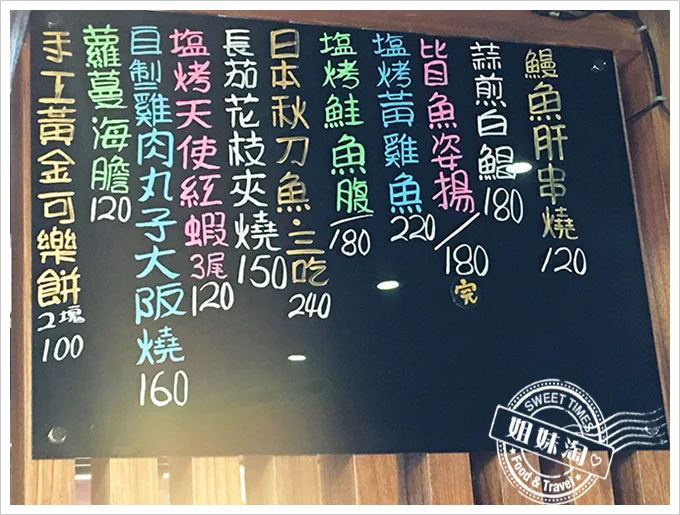 鰻魚肝串燒
120
蒜煎白鯧
180
皆魚姿揚
180
完
塩烤黃雞魚
220
塩烤鮭魚腹
180
日本秋刀魚.三吃
240
長茄花枝夾燒
150
塩烤天使紅蝦3尾
120
自製雞肉丸子大阪燒
160
蘿蔓海膽
120
手工黃金可樂餅
2塊
100
SWEET TIMES
姐妹淘
Food & Travel